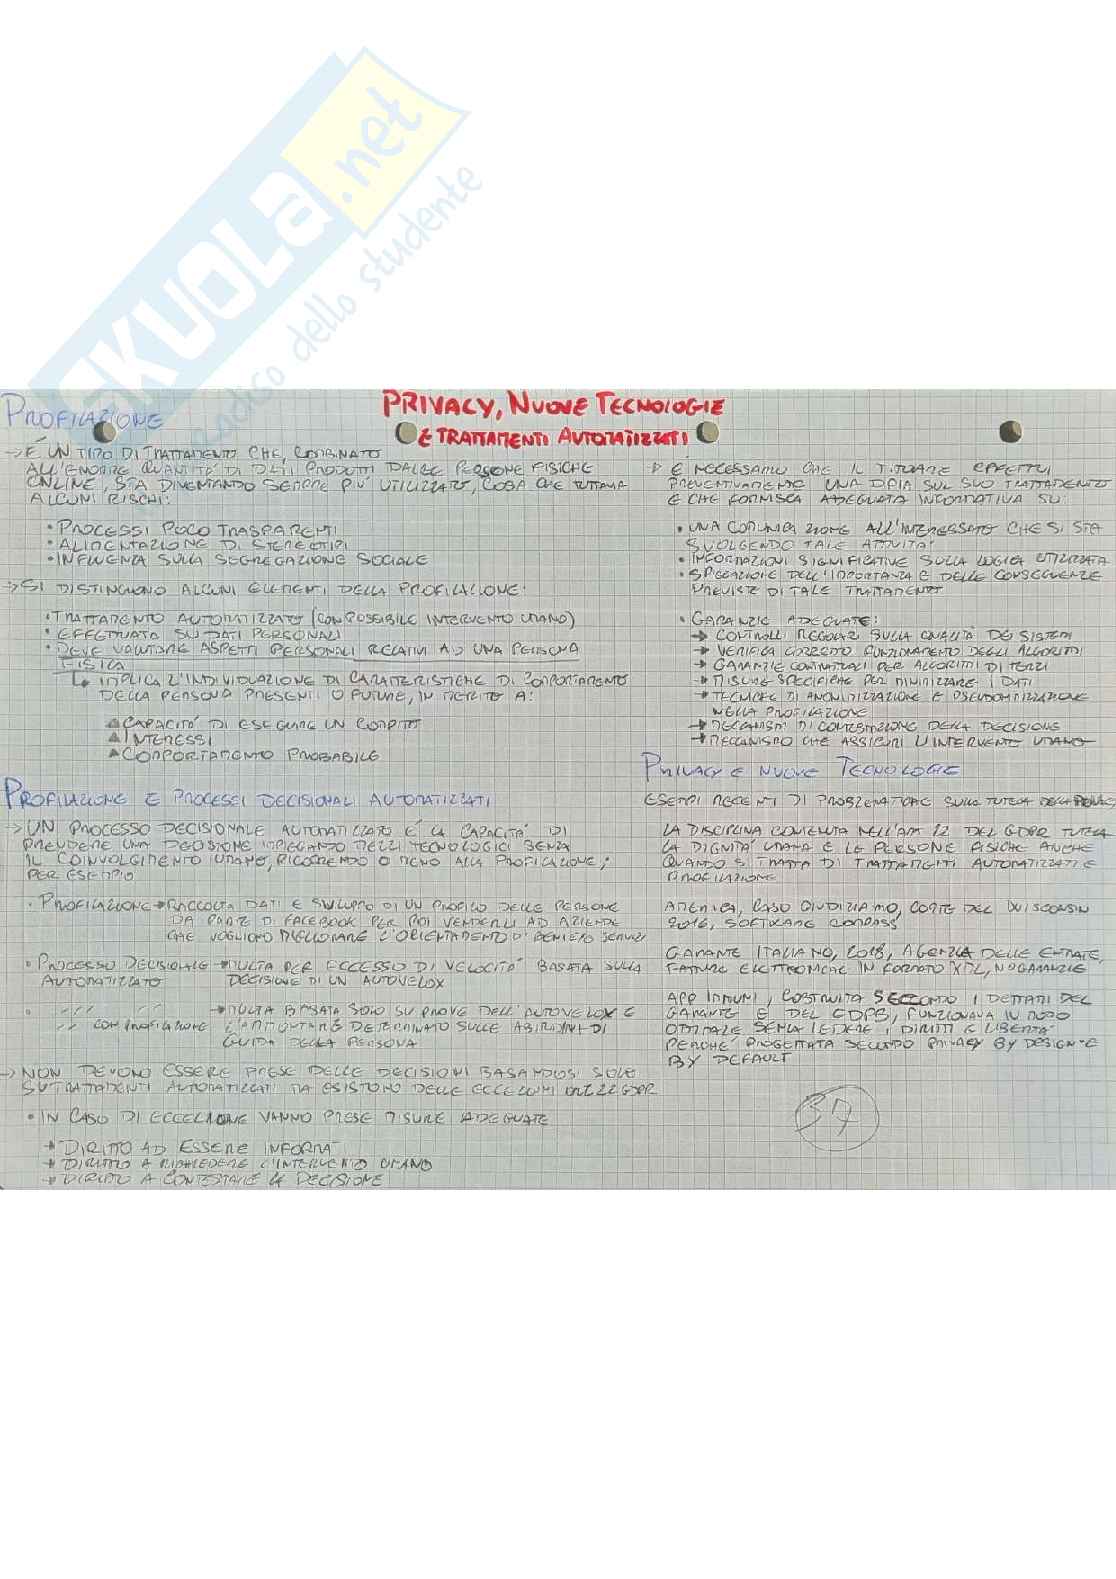 SKUOLA.net
dello studente
PRIVACY, NUOVE TECNOLOGIE
E TRATTAMENTI AUTOMATIZZATI
PROFILAZIONE
→ É UN TIPO DI TRATTAMENTO CHE, COMBINATO
ALL'ENORME QUANTITÀ DI DATI PRODOTTI DALLE PERSONE FISICHE
ONLINE, STA DIVENTANDO SEMPRE PIÙ UTILIZZATO, COSA CHE TUTTAVIA
ALCUNI RISCHI:
• PROCESSI POCO TRASPARENTI
• ALIMENTAZIONE DI STEREOTIPI
• INFLUENZA SULLA SEGREGAZIONE SOCIALE
→ SI DISTINGUONO ALCUNI ELEMENTI DELLA PROFILAZIONE:
• TRATTAMENTO AUTOMATIZZATO (CON POSSIBILE INTERVENTO UMANO)
• EFFETTUATO SU DATI PERSONALI
• DEVE VALUTARE ASPETTI PERSONALI RELATIVI AD UNA PERSONA
FISICA
↳ IMPLICA L'INDIVIDUAZIONE DI CARATTERISTICHE DI COMPORTAMENTO
DELLA PERSONA PRESENTI O FUTURE, IN MERITO A:
▲ CAPACITÁ DI ESEGUIRE UN COMPITO
▲ INTERESSI
▲ COMPORTAMENTO PROBABILE
PROFILAZIONE E PROCESSI DECISIONALI AUTOMATIZZATI
→ UN PROCESSO DECISIONALE AUTOMATIZZATO É LA CAPACITÁ DI
PRENDERE UNA DECISIONE IMPIEGANDO MEZZI TECNOLOGICI SENZA
IL COINVOLGIMENTO UMANO, RICORRENDO O MENO ALLA PROFILAZIONE;
PER ESEMPIO
• PROFILAZIONE → RACCOLTA DATI E SVILUPPO DI UN PROFILO DELLE PERSONE
DA PARTE DI FACEBOOK PER POI VENDERLI AD AZIENDE
CHE VOGLIONO MIGLIORARE L'ORIENTAMENTO DI BENI E/O SERVIZI
• PROCESSO DECISIONALE → MULTA PER ECCESSO DI VELOCITÁ BASATA SULLA
AUTOMATIZZATO DECISIONE DI UN AUTOVELOX
• '' '' → MULTA BASATA SOLO SU PROVE DELL'AUTOVELOX E
CON PROFILAZIONE L'AMMONTARE DETERMINATO SULLE ABITUDINI DI
GUIDA DELLA PERSONA
→ NON DEVONO ESSERE PRESE DELLE DECISIONI BASANDOSI SOLO
SU TRATTAMENTI AUTOMATIZZATI MA ESISTONO DELLE ECCEZIONI ART 22 GDPR
• IN CASO DI ECCEZIONE VANNO PRESE MISURE ADEGUATE
→ DIRITTO AD ESSERE INFORMATI
→ DIRITTO A RICHIEDERE L'INTERVENTO UMANO
→ DIRITTO A CONTESTARE LA DECISIONE
→ É NECESSARIO CHE IL TITOLARE EFFETTUI
PREVENTIVAMENTE UNA DPIA SUL SUO TRATTAMENTO
E CHE FORNISCA ADEGUATA INFORMATIVA SU:
• UNA COMUNICAZIONE ALL'INTERESSATO CHE SI STA
SVOLGENDO TALE ATTIVITÁ
• INFORMAZIONI SIGNIFICATIVE SULLA LOGICA UTILIZZATA
• SPIEGAZIONE DELL'IMPORTANZA E DELLE CONSEGUENZE
PREVISTE DI TALE TRATTAMENTO
• GARANZIE ADEGUATE:
→ CONTROLLI REGOLARI SULLA QUALITÁ DEI SISTEMI
→ VERIFICA CORRETTO FUNZIONAMENTO DEGLI ALGORITMI
→ GARANZIE CONTRATTUALI PER ALGORITMI DI TERZI
→ MISURE SPECIFICHE PER MINIMIZZARE I DATI
→ TECNICHE DI ANONIMIZZAZIONE E PSEUDOMIZZAZIONE
NELLA PROFILAZIONE
→ MECCANISMI DI CONTESTAZIONE DELLA DECISIONE
→ MECCANISMO CHE ASSICURI L'INTERVENTO UMANO
PRIVACY E NUOVE TECNOLOGIE
ESEMPI RECENTI DI PROBLEMATICHE SULLA TUTELA DELLA PRIVACY
LA DISCIPLINA CONTENUTA NELL'ART 22 DEL GDPR TUTELA
LA DIGNITÁ UMANA E LE PERSONE FISICHE ANCHE
QUANDO SI TRATTA DI TRATTAMENTI AUTOMATIZZATI E
PROFILAZIONE
AMERICA, CASO GIUDIZIARIO, CORTE DEL WISCONSIN
2016, SOFTWARE COMPASS
GARANTE ITALIANO, 2018, AGENZIA DELLE ENTRATE,
FATTURE ELETTRONICHE IN FORMATO XML, NO GARANZIE
APP IMMUNI, COSTRUITA SECONDO I DETTATI DEL
GARANTE E DEL GDPR, FUNZIONAVA IN MODO
OTTIMALE SENZA LEDERE I DIRITTI E LIBERTÁ
PERCHÉ PROGETTATA SECONDO PRIVACY BY DESIGN E
BY DEFAULT
37